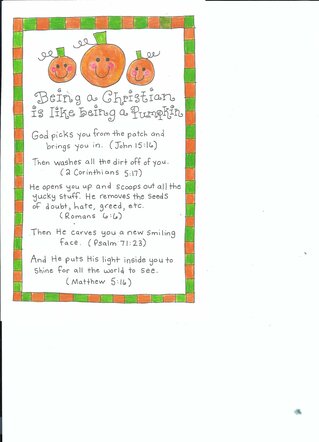 Being a Christian
is like being a Pumpkin
God picks you from the patch and
brings you in. (John 15:16)
Then washes all the dirt off of you.
(2 Corinthians 5:17)
He opens you up and scoops out all the
yucky stuff. He removes the seeds
of doubt, hate, greed, etc.
(Romans 6:6)
Then He carves you a new smiling
face. (Psalm 71:23)
And He puts His light inside you to
shine for all the world to see.
(Matthew 5:16)